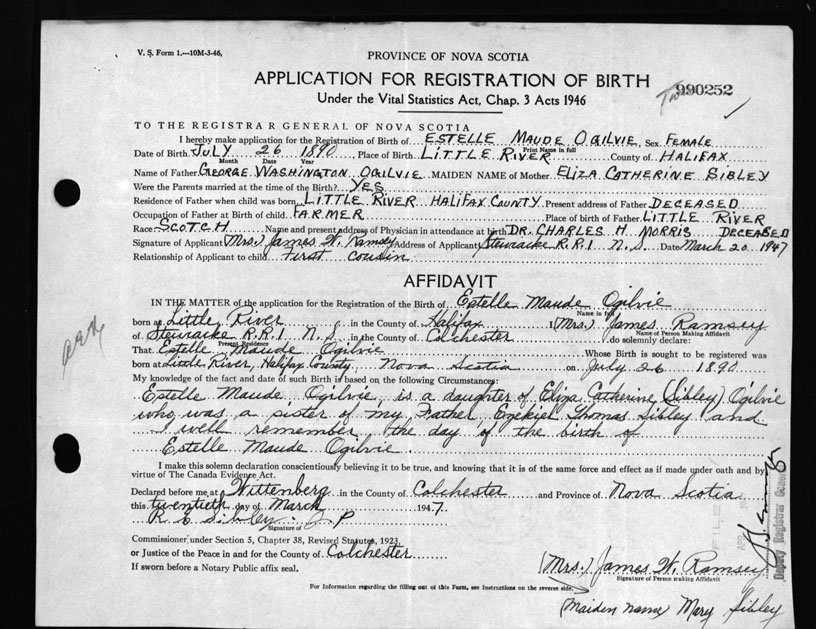 V. S. Form 1.—10M-3-46.
PROVINCE OF NOVA SCOTIA
APPLICATION FOR REGISTRATION OF BIRTH
990252
Under the Vital Statistics Act, Chap. 3 Acts 1946
TO THE REGISTRAR GENERAL OF NOVA SCOTIA
I hereby make application for the Registration of Birth of ESTELLE MAUDE OGILVIE, Sex FEMALE
Print Name in full
Date of Birth JULY 26 1890, Place of Birth LITTLE RIVER County of HALIFAX
Month Date Year
Name of Father GEORGE WASHINGTON OGILVIE MAIDEN NAME of Mother ELIZA CATHERINE SIBLEY
Were the Parents married at the time of the Birth? YES
Residence of Father when child was born LITTLE RIVER HALIFAX COUNTY Present address of Father DECEASED
Occupation of Father at Birth of child FARMER Place of birth of Father LITTLE RIVER
Race SCOTCH Name and present address of Physician in attendance at birth DR. CHARLES H MORRIS DECEASED
Signature of Applicant (Mrs.) James W. Ramsey Address of Applicant Stewiacke R.R.1 N.S. Date March 20 1947
Relationship of Applicant to child First Cousin
AFFIDAVIT
IN THE MATTER of the application for the Registration of the Birth of Estelle Maude Ogilvie
Name in full
born at Little River in the County of Halifax I (Mrs.) James Ramsey
Name of Person Making Affidavit
of Stewiacke R.R.1 N.S. in the County of Colchester do solemnly declare:
Present Residence
That Estelle Maude Ogilvie Whose Birth is sought to be registered was
born at Little River, Halifax County Nova Scotia on July 26 1890
My knowledge of the fact and date of such Birth is based on the following Circumstances:
Estelle Maude Ogilvie, is a daughter of Eliza Catherine (Sibley) Ogilvie
who was a sister of my Father Ezekiel Thomas Sibley and
I well remember the day of the birth of
Estelle Maude Ogilvie.
I make this solemn declaration conscientiously believing it to be true, and knowing that it is of the same force and effect as if made under oath and by
virtue of The Canada Evidence Act.
Declared before me at Wittenberg in the County of Colchester and Province of Nova Scotia
this twentieth day of March 1947
Sibley J P
Signature of
Commissioner under Section 5, Chapter 38, Revised Statutes, 1923,
or Justice of the Peace in and for the County of Colchester
If sworn before a Notary Public affix seal.
(Mrs.) James W. Ramsey
Signature of Person making Affidavit
For Information regarding the filling out of this Form, see Instructions on the reverse side.
(Maiden name) Mary Sibley
Deputy Registrar General